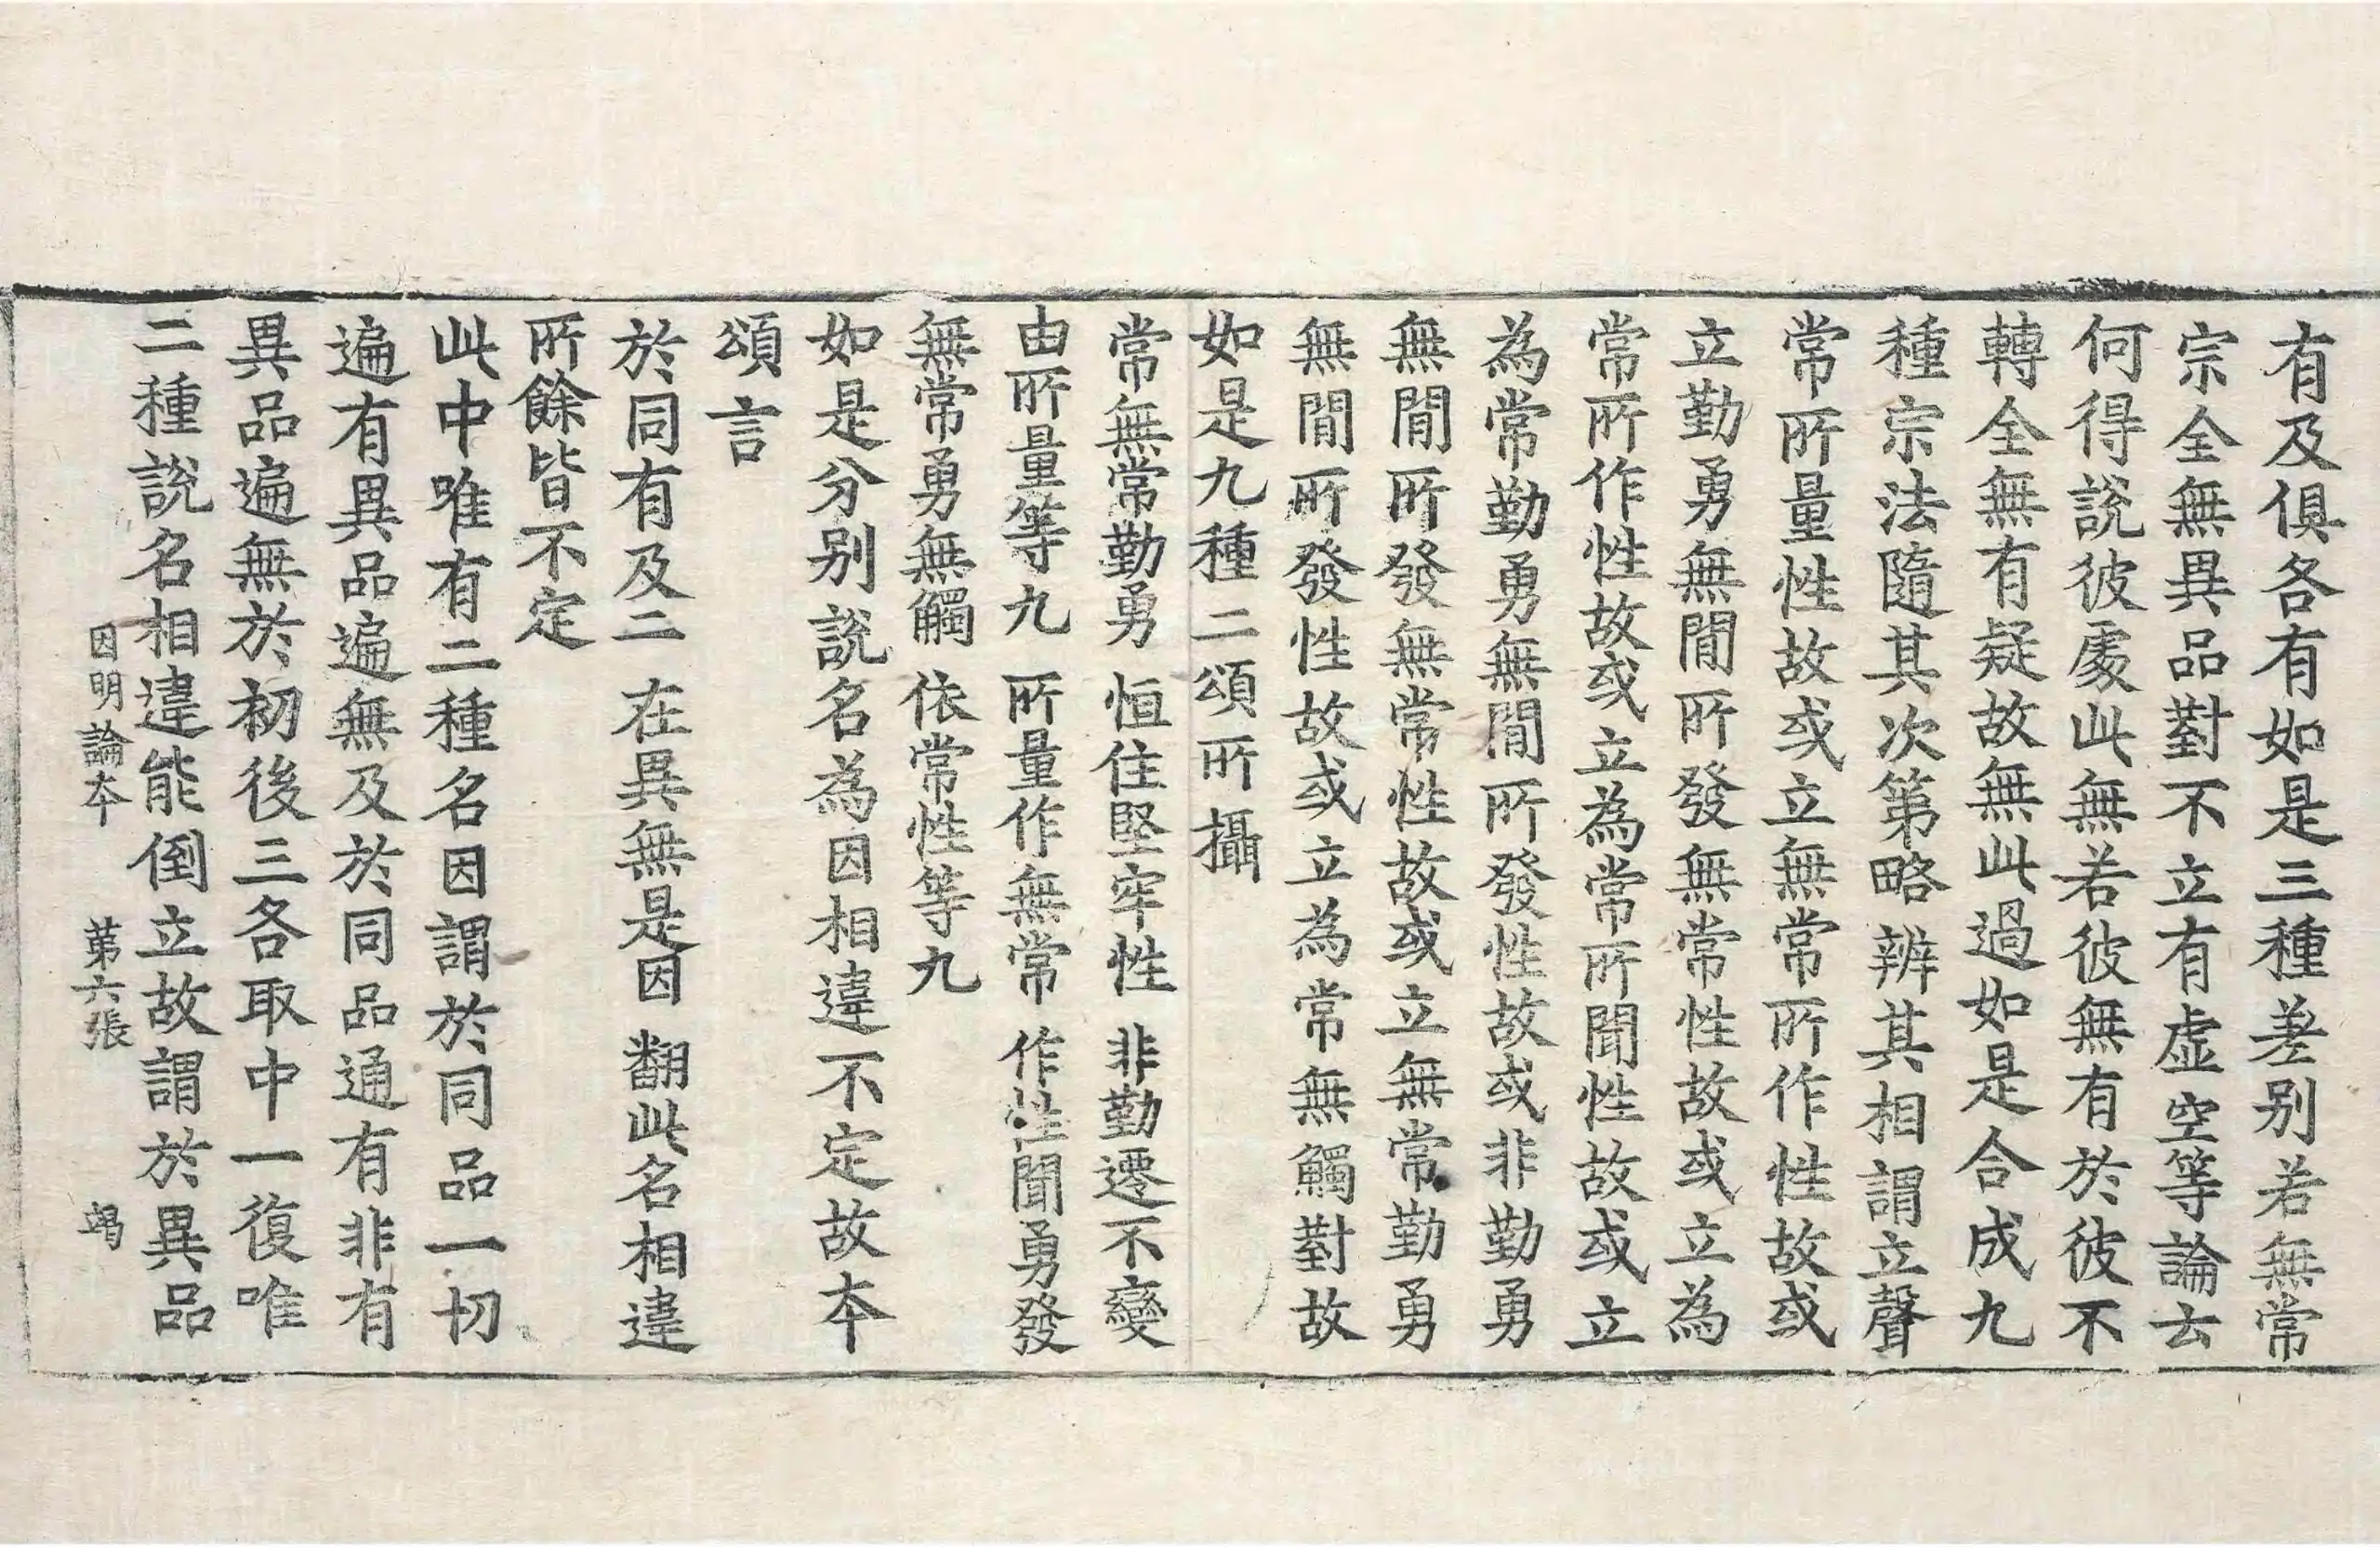 有及俱各有如是三種差別若無常
宗全無異品對不立有虛空等論云
何得說彼處此無若彼無有於彼不
轉全無有疑故無此過如是合成九
種宗法隨其次第略辨其相謂立聲
常所量性故或立無常所作性故或
立勤勇無間所發無常性故或立為
常所作性故或立為常所聞性故或立
為常勤勇無間所發性故或非勤勇
無間所發無常性故或立無常勤勇
無間所發性故或立為常無觸對故
如是九種二頌所攝
常無常勤勇 恒住堅牢性 非勤遷不變
由所量等九 所量作無常 作性聞勇發
無常勇無觸 依常性等九
如是分別說名為因相違不定故本
頌言
於同有及二 在異無是因 翻此名相違
所餘皆不定
此中唯有二種名因謂於同品一切
遍有異品遍無及於同品通有非有
異品遍無於初後三各取中一復唯
二種說名相違能倒立故謂於異品
因明論本 第六張 竭